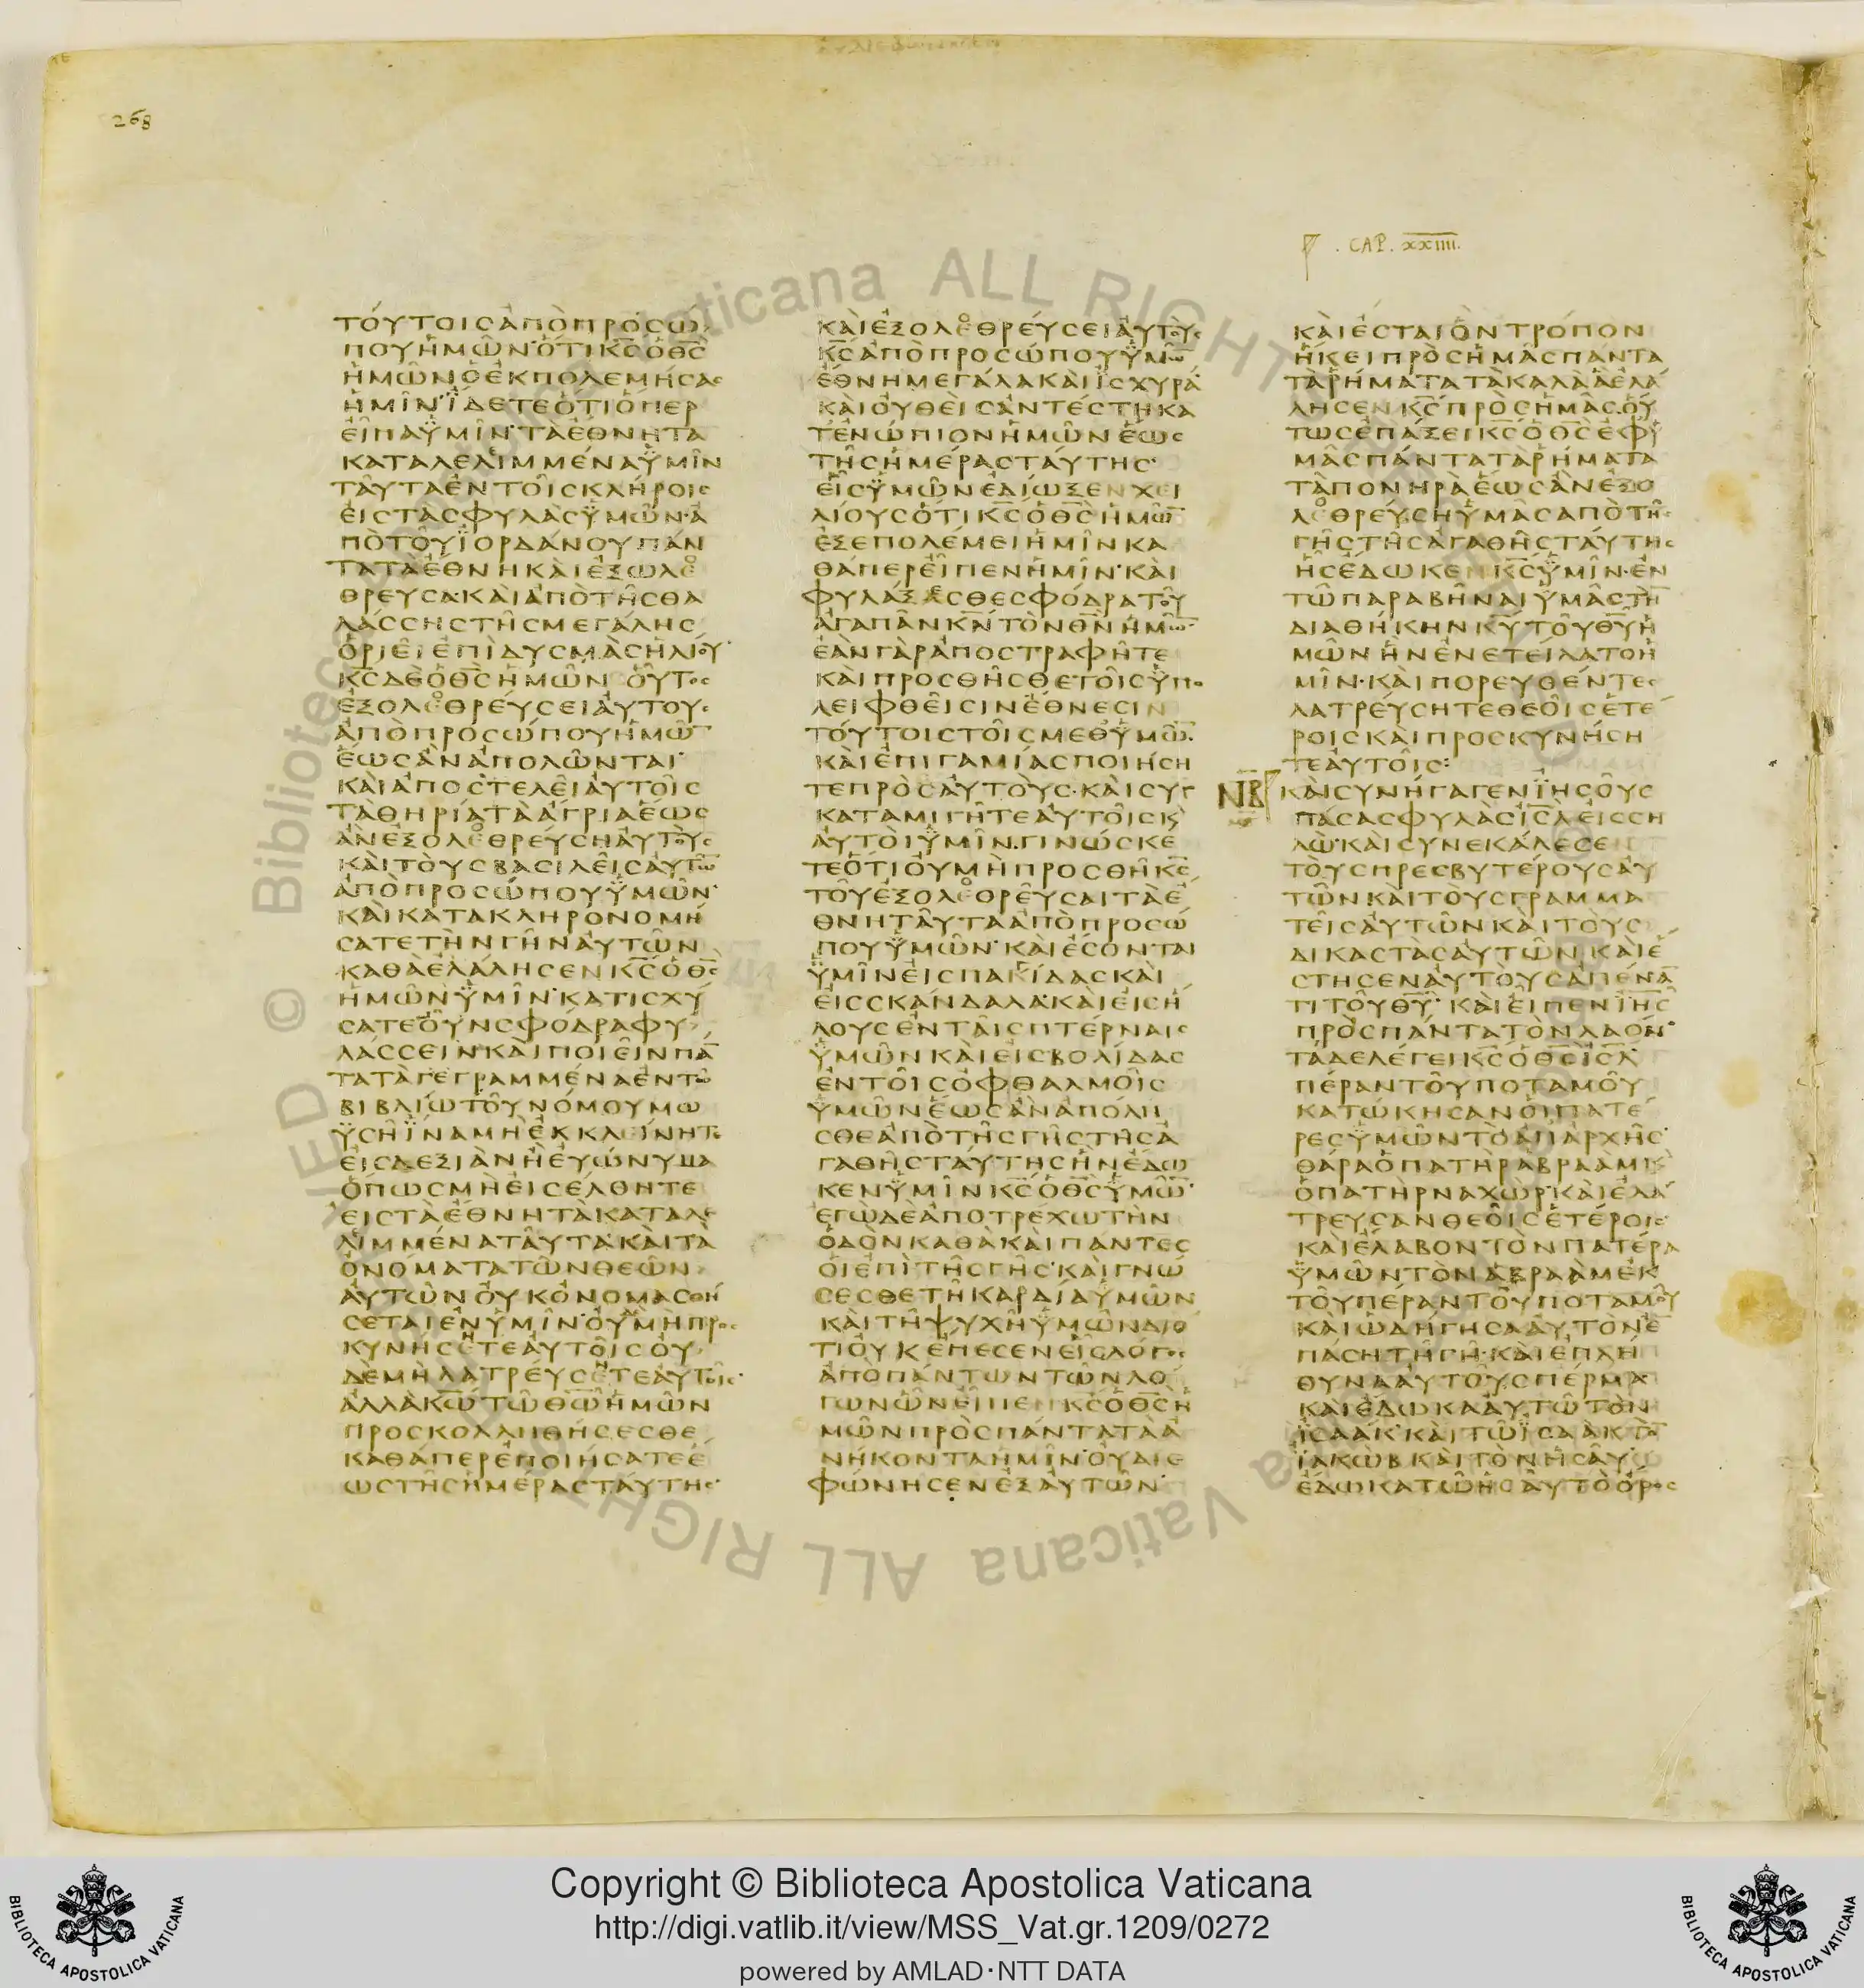 268
. CAP. XXIIII.
ΤΟΥΤΟΙϹΑΠΟΠΡΟϹΩ
ΠΟΥΗΜΩΝ·ΟΤΙΚ̅Ϲ̅ΟΘ̅Ϲ̅
ΗΜΩΝΟΕΚΠΟΛΕΜΗϹΑϹ
ΗΜΙΝ·ΪΔΕΤΕΟΤΙΟΠΕΡ
ΕΙΠΑΫΜΙΝ·ΤΑΕΘΝΗΤΑ
ΚΑΤΑΛΕΛΙΜΜΕΝΑΫΜΙΝ
ΤΑΥΤΑΕΝΤΟΙϹΚΛΗΡΟΙϹ
ΕΙϹΤΑϹΦΥΛΑϹΫΜΩΝ·Α
ΠΟΤΟΥΪΟΡΔΑΝΟΥΠΑΝ
ΤΑΤΑΕΘΝΗΚΑΙΕΞΩΛΕ
ΘΡΕΥϹΑ·ΚΑΙΑΠΟΤΗϹΘΑ
ΛΑϹϹΗϹΤΗϹΜΕΓΑΛΗϹ
ΟΡΙΕΙΕΠΙΔΥϹΜΑϹΗΛΙΟΥ·
Κ̅Ϲ̅ΔΕΟΘ̅Ϲ̅ΗΜΩΝ ΟΥΤΟϹ
ΕΞΟΛΕΘΡΕΥϹΕΙΑΥΤΟΥϹ
ΑΠΟΠΡΟϹΩΠΟΥΗΜΩ̅
ΕΩϹΑΝΑΠΟΛΩΝΤΑΙ·
ΚΑΙΑΠΟϹΤΕΛΕΙΑΥΤΟΙϹ
ΤΑΘΗΡΙΑΤΑΑΓΡΙΑΕΩϹ
ΑΝΕΞΟΛΕΘΡΕΥϹΗΑΥΤΟΥϹ
ΚΑΙΤΟΥϹΒΑϹΙΛΕΙϹΑΥΤΩ̅
ΑΠΟΠΡΟϹΩΠΟΥΫΜΩΝ·
ΚΑΙΚΑΤΑΚΛΗΡΟΝΟΜΗ
ϹΑΤΕΤΗΝΓΗΝΑΥΤΩΝ
ΚΑΘΑΕΛΑΛΗϹΕΝΚ̅Ϲ̅ΟΘ̅Ϲ̅
ΗΜΩΝΫΜΙΝ·ΚΑΤΙϹΧΥ
ϹΑΤΕΟΥΝϹΦΟΔΡΑΦΥ
ΛΑϹϹΕΙΝΚΑΙΠΟΙΕΙΝΠΑ̅
ΤΑΤΑΓΕΓΡΑΜΜΕΝΑΕΝΤΩ
ΒΙΒΛΙΩΤΟΥΝΟΜΟΥΜΩ
ΫϹΗΪΝΑΜΗΕΚΚΛΕΙΝΗΤΕ
ΕΙϹΔΕΞΙΑΝΗΕΥΩΝΥΜΑ
ΟΠΩϹΜΗΕΙϹΕΛΘΗΤΕ
ΕΙϹΤΑΕΘΝΗΤΑΚΑΤΑΛΕ
ΛΙΜΜΕΝΑΤΑΥΤΑ·ΚΑΙΤΑ
ΟΝΟΜΑΤΑΤΩΝΘΕΩΝ
ΑΥΤΩΝΟΥΚΟΝΟΜΑϹΘΗ
ϹΕΤΑΙΕΝΫΜΙΝ·ΟΥΜΗΠΡΟϹ
ΚΥΝΗϹΕΤΕΑΥΤΟΙϹΟΥ
ΔΕΜΗΛΑΤΡΕΥϹΕΤΕΑΥΤΟΙϹ·
ΑΛΛΑΚ̅Ω̅ΤΩΘ̅Ω̅ΗΜΩΝ
ΠΡΟϹΚΟΛΛΗΘΗϹΕϹΘΕ
ΚΑΘΑΠΕΡΕΠΟΙΗϹΑΤΕΕ
ΩϹΤΗϹΗΜΕΡΑϹΤΑΥΤΗϹ·
ΚΑΙΕΞΟΛΕΘΡΕΥϹΕΙΑΥΤΟΥϹ
Κ̅Ϲ̅ΑΠΟΠΡΟϹΩΠΟΥΫΜΩ̅
ΕΘΝΗΜΕΓΑΛΑΚΑΙΪϹΧΥΡΑ·
ΚΑΙΟΥΘΕΙϹΑΝΤΕϹΤΗΚΑ
ΤΕΝΩΠΙΟΝΗΜΩΝΕΩϹ
ΤΗϹΗΜΕΡΑϹΤΑΥΤΗϹ·
ΕΙϹΫΜΩΝΕΔΙΩΞΕΝΧΕΙ
ΛΙΟΥϹΟΤΙΚ̅Ϲ̅ΟΘ̅Ϲ̅ΗΜΩ̅
ΕΞΕΠΟΛΕΜΕΙΗΜΙΝΚΑ
ΘΑΠΕΡΕΙΠΕΝΗΜΙΝ·ΚΑΙ
ΦΥΛΑΞΕϹΘΕϹΦΟΔΡΑΤΟΥ
ΑΓΑΠΑΝΚ̅Ν̅ΤΟΝΘ̅Ν̅ΗΜΩ̅·
ΕΑΝΓΑΡΑΠΟϹΤΡΑΦΗΤΕ
ΚΑΙΠΡΟϹΘΗϹΘΕΤΟΙϹΫΠΟ
ΛΕΙΦΘΕΙϹΙΝΕΘΝΕϹΙΝ
ΤΟΥΤΟΙϹΤΟΙϹΜΕΘΫΜΩ̅·
ΚΑΙΕΠΙΓΑΜΙΑϹΠΟΙΗϹΗ
ΤΕΠΡΟϹΑΥΤΟΥϹ·ΚΑΙϹΥΓ
ΚΑΤΑΜΙΓΗΤΕΑΥΤΟΙϹΚ
ΑΥΤΟΙΫΜΙΝ·ΓΙΝΩϹΚΕ
ΤΕΟΤΙΟΥΜΗΠΡΟϹΘΗΚ̅Ϲ̅
ΤΟΥΕΞΟΛΕΘΡΕΥϹΑΙΤΑΕ
ΘΝΗΤΑΥΤΑΑΠΟΠΡΟϹΩ
ΠΟΥΫΜΩΝ·ΚΑΙΕϹΟΝΤΑΙ
ΫΜΙΝΕΙϹΠΑΓΙΔΑϹΚΑΙ
ΕΙϹϹΚΑΝΔΑΛΑ·ΚΑΙΕΙϹΗ
ΛΟΥϹΕΝΤΑΙϹΠΤΕΡΝΑΙϹ
ΫΜΩΝΚΑΙΕΙϹΒΟΛΙΔΑϹ
ΕΝΤΟΙϹΟΦΘΑΛΜΟΙϹ
ΫΜΩΝΕΩϹΑΝΑΠΟΛΗ
ϹΘΕΑΠΟΤΗϹΓΗϹΤΗϹΑ
ΓΑΘΗϹΤΑΥΤΗϹΗΝΕΔΩ
ΚΕΝΫΜΙΝΚ̅Ϲ̅ΟΘ̅Ϲ̅ΫΜΩ̅·
ΕΓΩΔΕΑΠΟΤΡΕΧΩΤΗΝ
ΟΔΟΝΚΑΘΑΚΑΙΠΑΝΤΕϹ
ΟΙΕΠΙΤΗϹΓΗϹ·ΚΑΙΓΝΩ
ϹΕϹΘΕΤΗΚΑΡΔΙΑΫΜΩΝ
ΚΑΙΤΗΨΥΧΗΫΜΩΝΔΙΟ
ΤΙΟΥΚΕΠΕϹΕΝΕΙϹΛΟΓΟϹ
ΑΠΟΠΑΝΤΩΝΤΩΝΛΟ
ΓΩΝΩΝΕΙΠΕΝΚ̅Ϲ̅ΟΘ̅Ϲ̅Η
ΜΩΝΠΡΟϹΠΑΝΤΑΤΑΑ
ΝΗΚΟΝΤΑΗΜΙΝ·ΟΥΔΙΕ
ΦΩΝΗϹΕΝΕΞΑΥΤΩΝ·
ΚΑΙΕϹΤΑΙΟΝΤΡΟΠΟΝ
ΗΚΕΙΠΡΟϹΗΜΑϹΠΑΝΤΑ
ΤΑΡΗΜΑΤΑΤΑΚΑΛΑΑΕΛΑ
ΛΗϹΕΝΚ̅Ϲ̅ΠΡΟϹΗΜΑϹ·ΟΥ
ΤΩϹΕΠΑΞΕΙΚ̅Ϲ̅ΟΘ̅Ϲ̅ΕΦΫ
ΜΑϹΠΑΝΤΑΤΑΡΗΜΑΤΑ
ΤΑΠΟΝΗΡΑΕΩϹΑΝΕΞΟ
ΛΕΘΡΕΥϹΗΫΜΑϹΑΠΟΤΗϹ
ΓΗϹΤΗϹΑΓΑΘΗϹΤΑΥΤΗϹ
ΗϹΕΔΩΚΕΝΚ̅Ϲ̅ΫΜΙΝ·ΕΝ
ΤΩΠΑΡΑΒΗΝΑΙΫΜΑϹΤΗ̅
ΔΙΑΘΗΚΗΝΚ̅Υ̅ΤΟΥΘ̅Υ̅Η
ΜΩΝΗΝΕΝΕΤΕΙΛΑΤΟΗ
ΜΙΝ·ΚΑΙΠΟΡΕΥΘΕΝΤΕϹ
ΛΑΤΡΕΥϹΗΤΕΘΕΟΙϹΕΤΕ
ΡΟΙϹΚΑΙΠΡΟϹΚΥΝΗϹΗ
ΤΕΑΥΤΟΙϹ:
ΝΒ ΚΑΙϹΥΝΗΓΑΓΕΝΪΗϹΟΥϹ
ΠΑϹΑϹΦΥΛΑϹΙ̅Ϲ̅Λ̅ΕΙϹϹΗ
ΛΩ·ΚΑΙϹΥΝΕΚΑΛΕϹΕ
ΤΟΥϹΠΡΕϹΒΥΤΕΡΟΥϹΑΥ
ΤΩΝΚΑΙΤΟΥϹΓΡΑΜΜΑ
ΤΕΙϹΑΥΤΩΝΚΑΙΤΟΥϹ
ΔΙΚΑϹΤΑϹΑΥΤΩΝΚΑΙΕ
ϹΤΗϹΕΝΑΥΤΟΥϹΑΠΕΝΑ̅
ΤΙΤΟΥΘ̅Υ̅·ΚΑΙΕΙΠΕΝΪΗϹ
ΠΡΟϹΠΑΝΤΑΤΟΝΛΑΟΝ·
ΤΑΔΕΛΕΓΕΙΚ̅Ϲ̅ΟΘ̅Ϲ̅Ι̅Ϲ̅Λ̅·
ΠΕΡΑΝΤΟΥΠΟΤΑΜΟΥ
ΚΑΤΩΚΗϹΑΝΟΙΠΑΤΕ
ΡΕϹΫΜΩΝΤΟΑΠΑΡΧΗϹ·
ΘΑΡΑΟΠΑΤΗΡΑΒΡΑΑΜΚ
ΟΠΑΤΗΡΝΑΧΩΡ·ΚΑΙΕΛΑ
ΤΡΕΥϹΑΝΘΕΟΙϹΕΤΕΡΟΙϹ·
ΚΑΙΕΛΑΒΟΝΤΟΝΠΑΤΕΡΑ
ΫΜΩΝΤΟΝΑΒΡΑΑΜΕΚ
ΤΟΥΠΕΡΑΝΤΟΥΠΟΤΑΜΟΥ
ΚΑΙΩΔΗΓΗϹΑΑΥΤΟΝΕ̅
ΠΑϹΗΤΗΓΗ·ΚΑΙΕΠΛΗ
ΘΥΝΑΑΥΤΟΥϹΠΕΡΜΑ·
ΚΑΙΕΔΩΚΑΑΥΤΩΤΟΝ
ΪϹΑΑΚ·ΚΑΙΤΩΪϹΑΑΚΤΟ̅
ΪΑΚΩΒΚΑΙΤΟΝΗϹΑΥ·
ΕΔΩΚΑΤΩΗϹΑΥΤΟΟΡΟϹ
Copyright © Biblioteca Apostolica Vaticana
http://digi.vatlib.it/view/MSS_Vat.gr.1209/0272
powered by AMLAD·NTT DATA
BIBLIOTECA APOSTOLICA VATICANA
BIBLIOTECA APOSTOLICA VATICANA